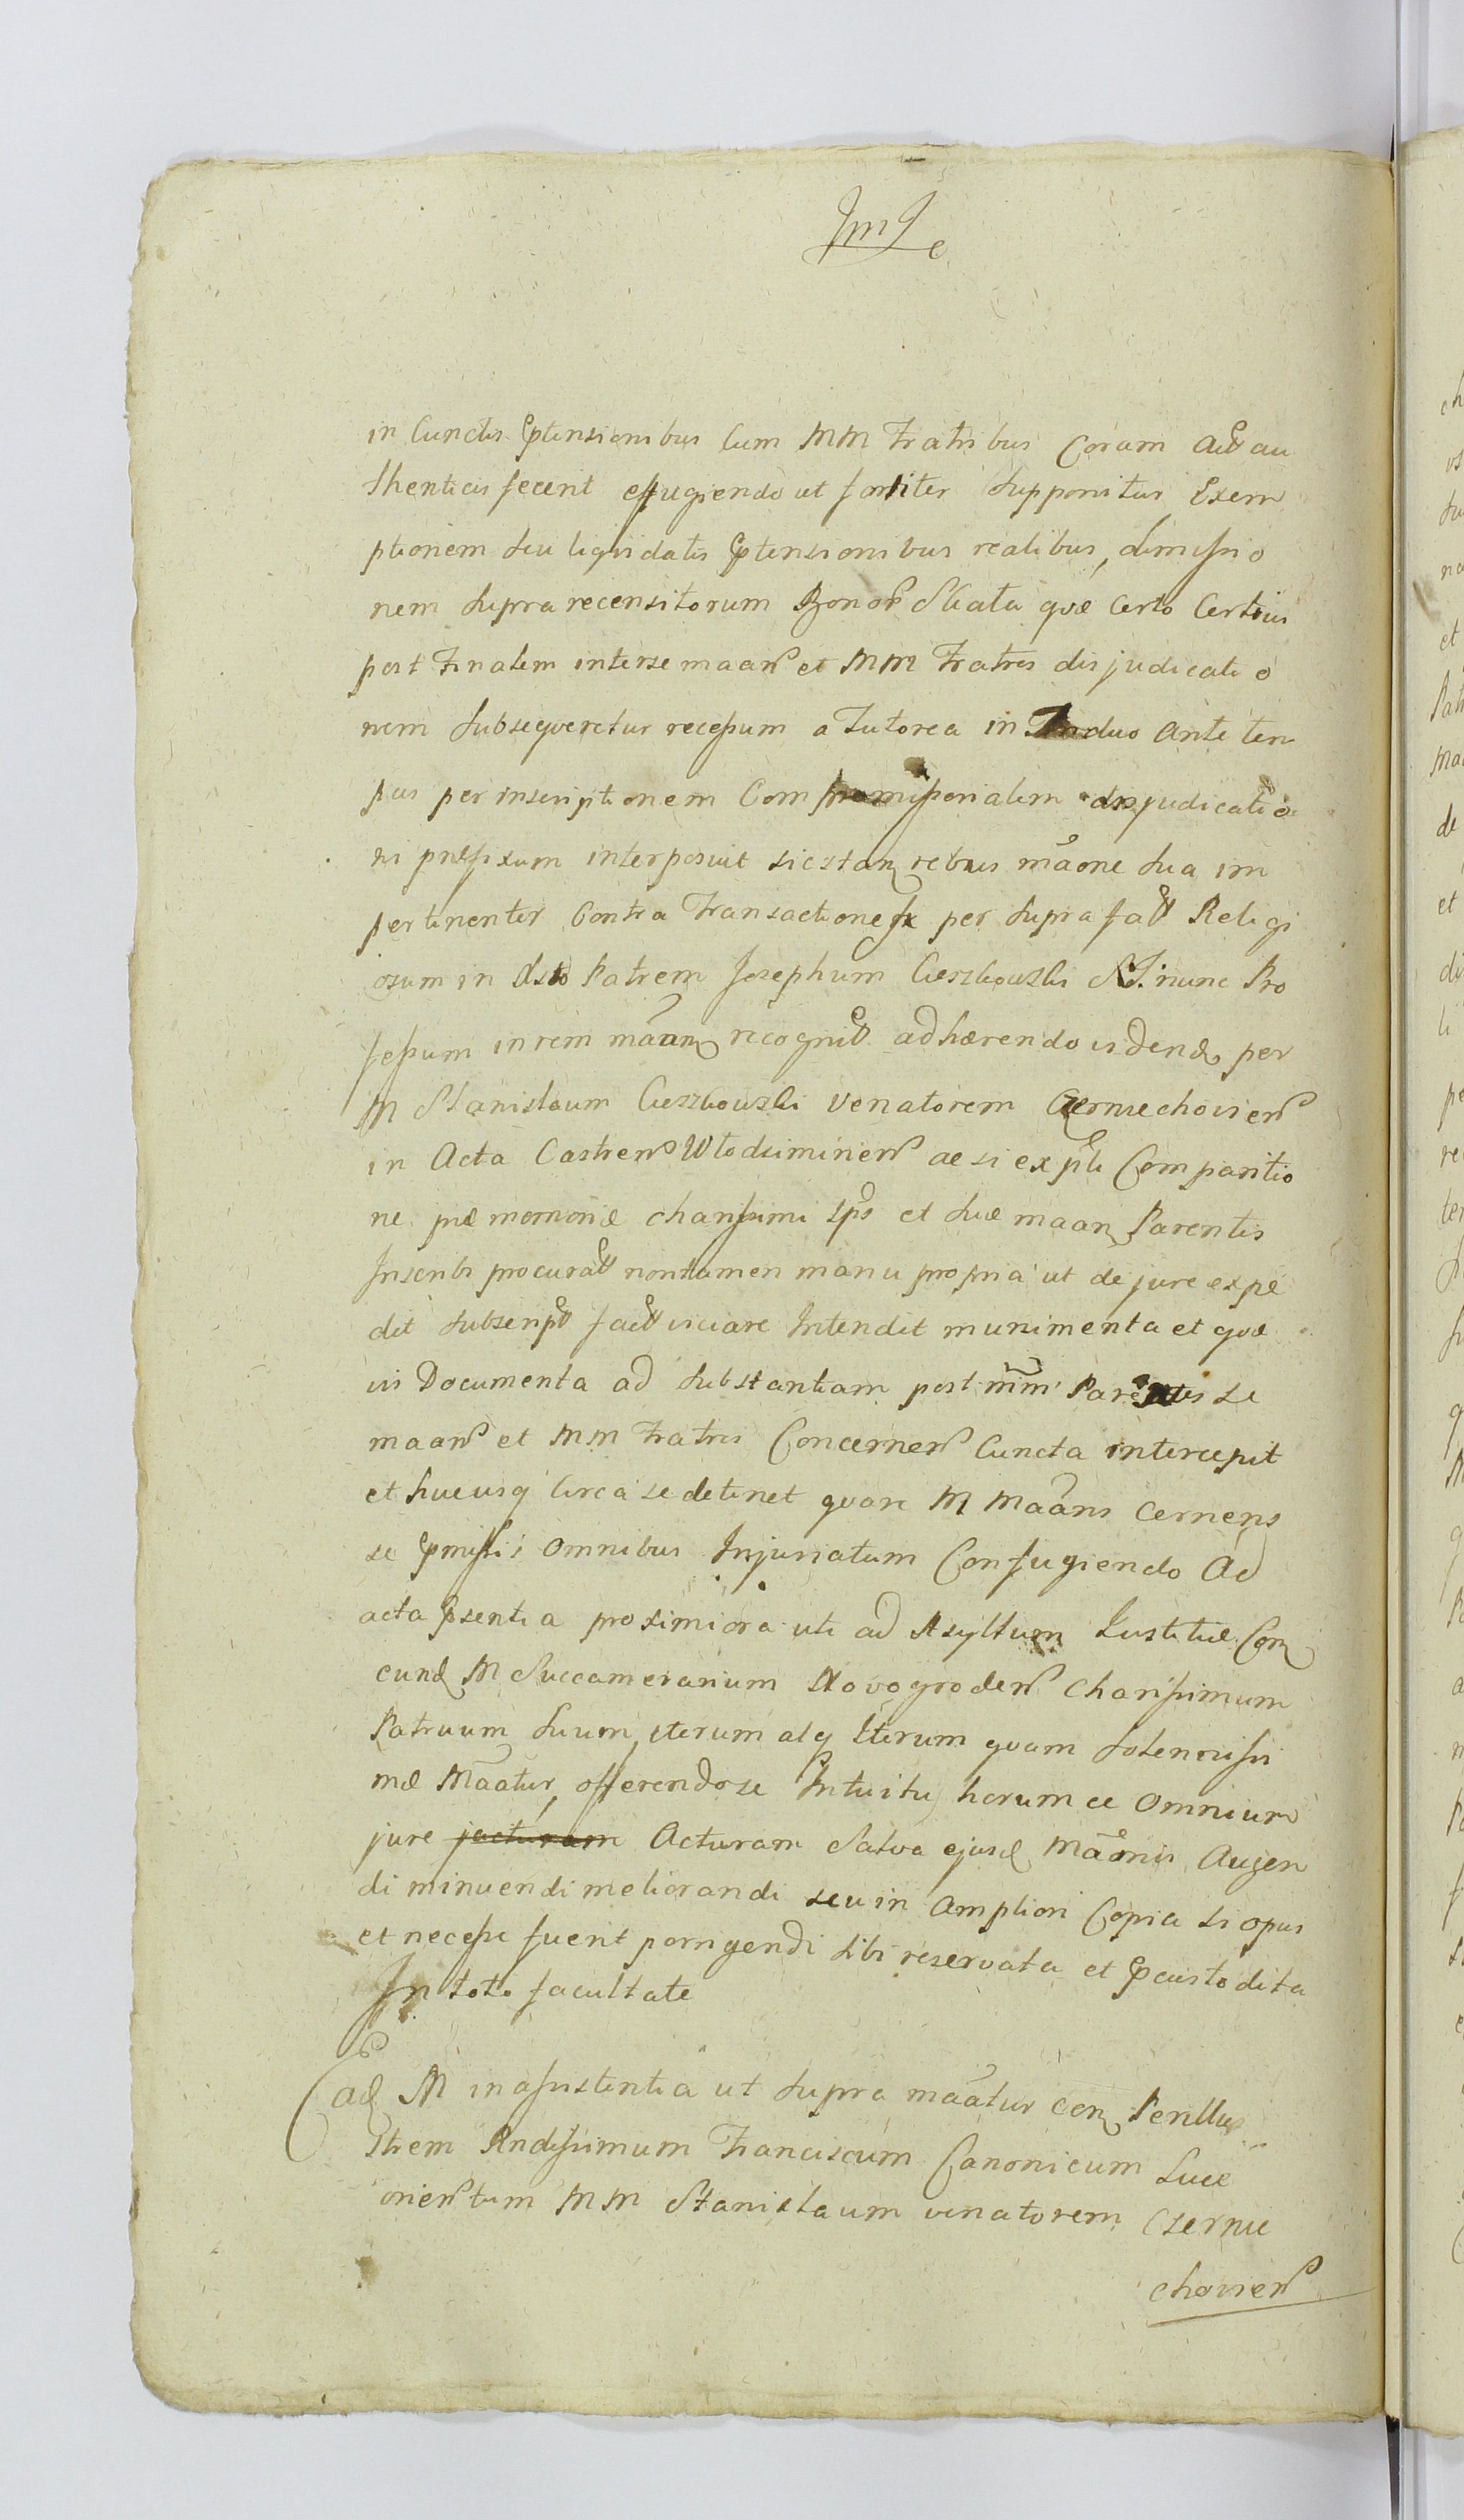 in Cunctis Ptensionibus Cum MM Fratribus Coram Act au
thenticis fecerit effugiendo ut fortiter supponitur Exem
ptionem seu liqvidatis Ptensionibus realibus, dimissio
nem supra recensitorum Bonor qvæ Certo Certius
post Finalem interse maan et MM Fratres disjudicatio
nem subseqveretur recessum a Tutorea in duo Ante tem
pus per inscriptionem Compromissorialem disjudicatio
ni præfixum interposuit sic stan rebus maone sua im
pertinenter Contra Transactiones per supra fat Religi
osum in Patrem Josephum Cieszkowski S.J. nunc Pro
fessum in rem maan recognit adhærendo per
M Stanislaum Cieszkowski Venatorem Czerniechovien
in Acta Castren Wlodzimirien ac si ex Comparitio
ne piæ memoriæ charissimi Ips et suæ maan Parentis
Inscribi procurat non tamen manu propria ut de jure expe
dit subscript viciare Intendit munimenta et qvæ
vis Documenta ad substantiam post Parentes se
maan et MM Fratres Concernen Cuncta intercepit
et hucusq Circa se detinet qvare M Maans Cernens
se Pmissis Omnibus Injuriatum Confugiendo Ad
acta Psentia proximiora uti ad Asyllum Justitiæ Con
M Succamerarium Novogroden Charissimum
Patruum suum, iterum atq Iterum qvam solennissi
me Maatur, offerendo se Intuitu horumce Omnium
jure jacturam Acturam Salva ejusd Maonis Augen
di minuendi meliorandi seu in Ampliori Copia si opus
et necesse fuerit porrigendi sibi reservata et Pcustodita
In toto facultate
Ead M in assistentia ut supra maatur con Perillu
strem Rndissimum Franciscum Canonicum Luce
oriensem MM Stanislaum venatorem Czernie
chovien